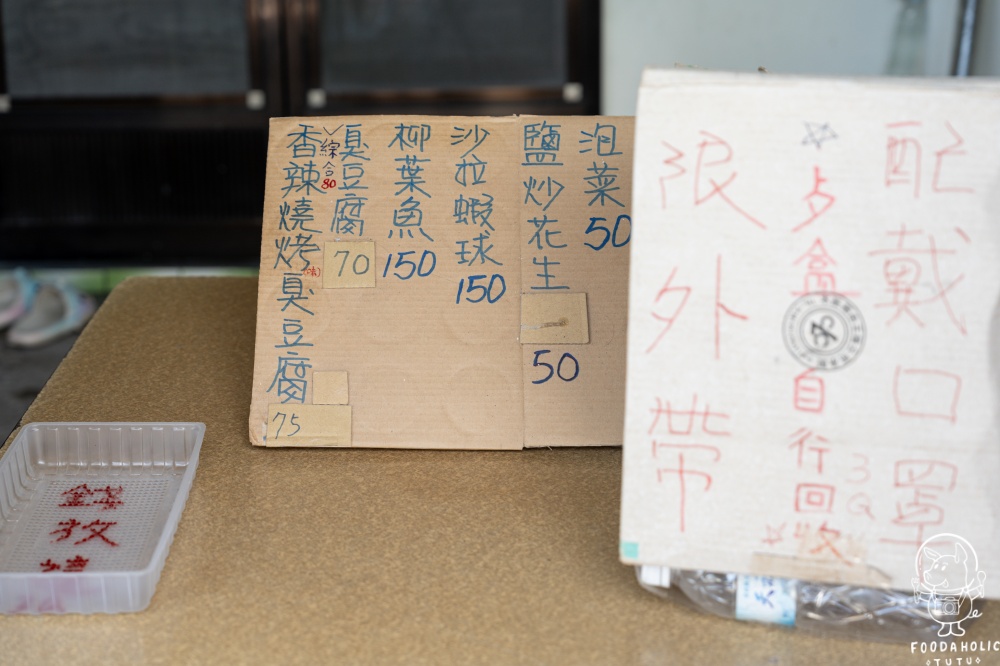 泡菜
50
鹽炒花生
50
沙拉蝦球
150
柳葉魚
150
臭豆腐
70
綜合80
香辣燒烤臭豆腐
75
配戴口罩
夕盒自行回收
3Q
限外帶
錢放
天
FOODAHOLIC
TUTU